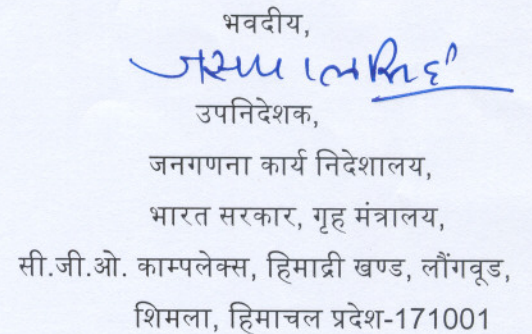 भवदीय,
उपनिदेशक,
जनगणना कार्य निदेशालय,
भारत सरकार, गृह मंत्रालय,
सी.जी.ओ. काम्पलेक्स, हिमाद्री खण्ड, लौंगवूड,
शिमला, हिमाचल प्रदेश-171001